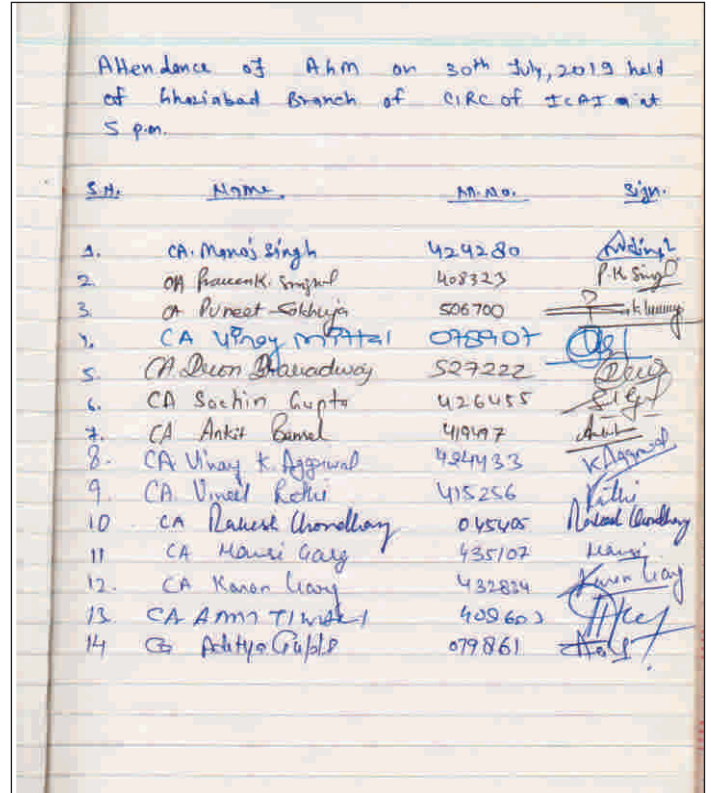 Attendence of AGM on 30th July, 2019 held
of Ghaziabad Branch of CIRC of ICAI at
5 p.m.
S.N. Name M.No. Sign.
1. CA. Manoj Singh 424280
2 CA Praveen K. Singhal 408323 P.K Singl
3. CA Puneet Sokhuja 506700
4. CA Vinay Mittal 078907
5. CA Deon Bharadwaj 527222
6. CA Sachin Gupta 426455
7. CA Ankit Bansal 419497 Ankit
8. CA Vinay K. Aggarwal 424433 K Aggarwal
9. CA Vineet Rathi 415256 Rathi
10 CA Rakesh Chondhary 045405 Rakesh Chondhary
11 CA Mansi Garg 435107 Mansi
12. CA Karan Garg 432834 Karan Garg
13 CA AMIT TIWARI 409603
14 CA Aditya Gupta 079861